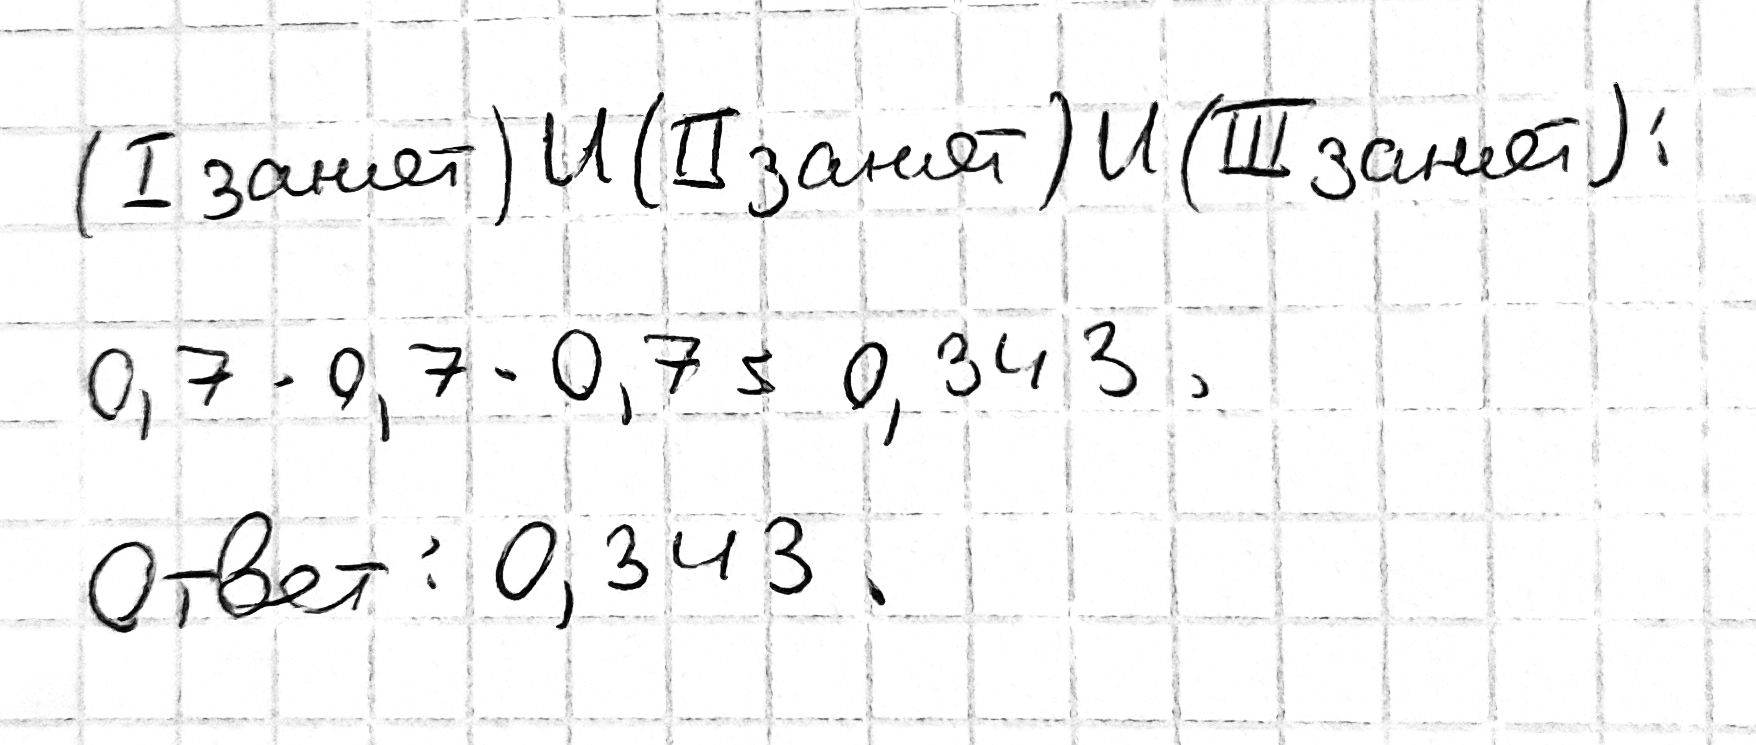 (I занят) И (II занят) И (III занят):
0,7 · 0,7 · 0,7 = 0,343.
Ответ: 0,343.